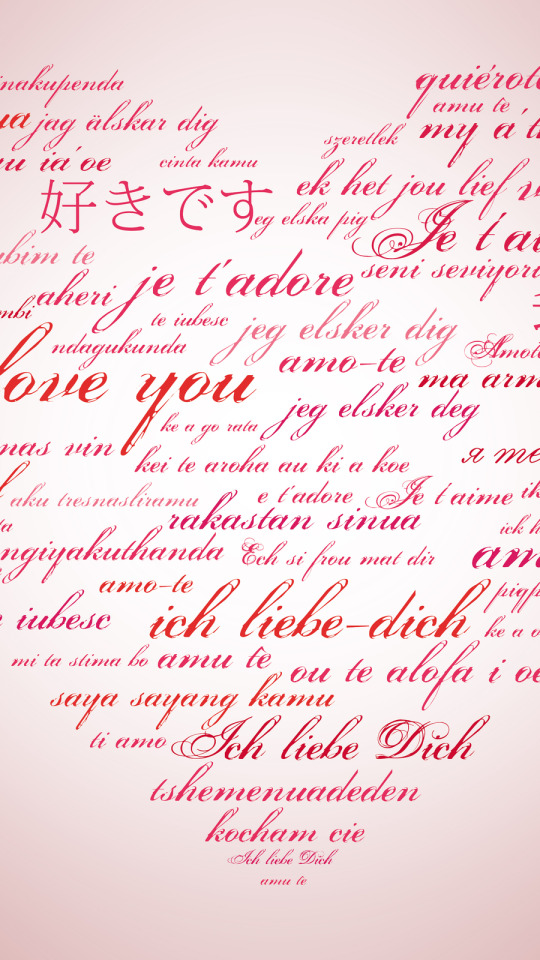 inakupenda
quiérote
amu te
ya jag älskar dig
szeretlek my a't
au ia'oe cinta kamu
好きです ek het jou lief
eg elska pig Je t'ai
ubim te
seni seviyoru
mbi aheri je t'adore
te iubesc jeg elsker dig
ndagukunda amo-te Amote
love you ma arm
ke a go rata jeg elsker deg
nas vin я me
kei te aroha au ki a koe
aku tresnasliramu e t'adore Je t'aime ik
ta rakastan sinua ick h
ngiyakuthanda Ech si frou mat dir am
amo-te pigp
iubesc ich liebe-dich ke a o
mi ta stima bo amu te ou te alofa i oe
saya sayang kamu
ti amo Ich liebe Dich
tshemenuadeden
kocham cie
Ich liebe Dich
amu te